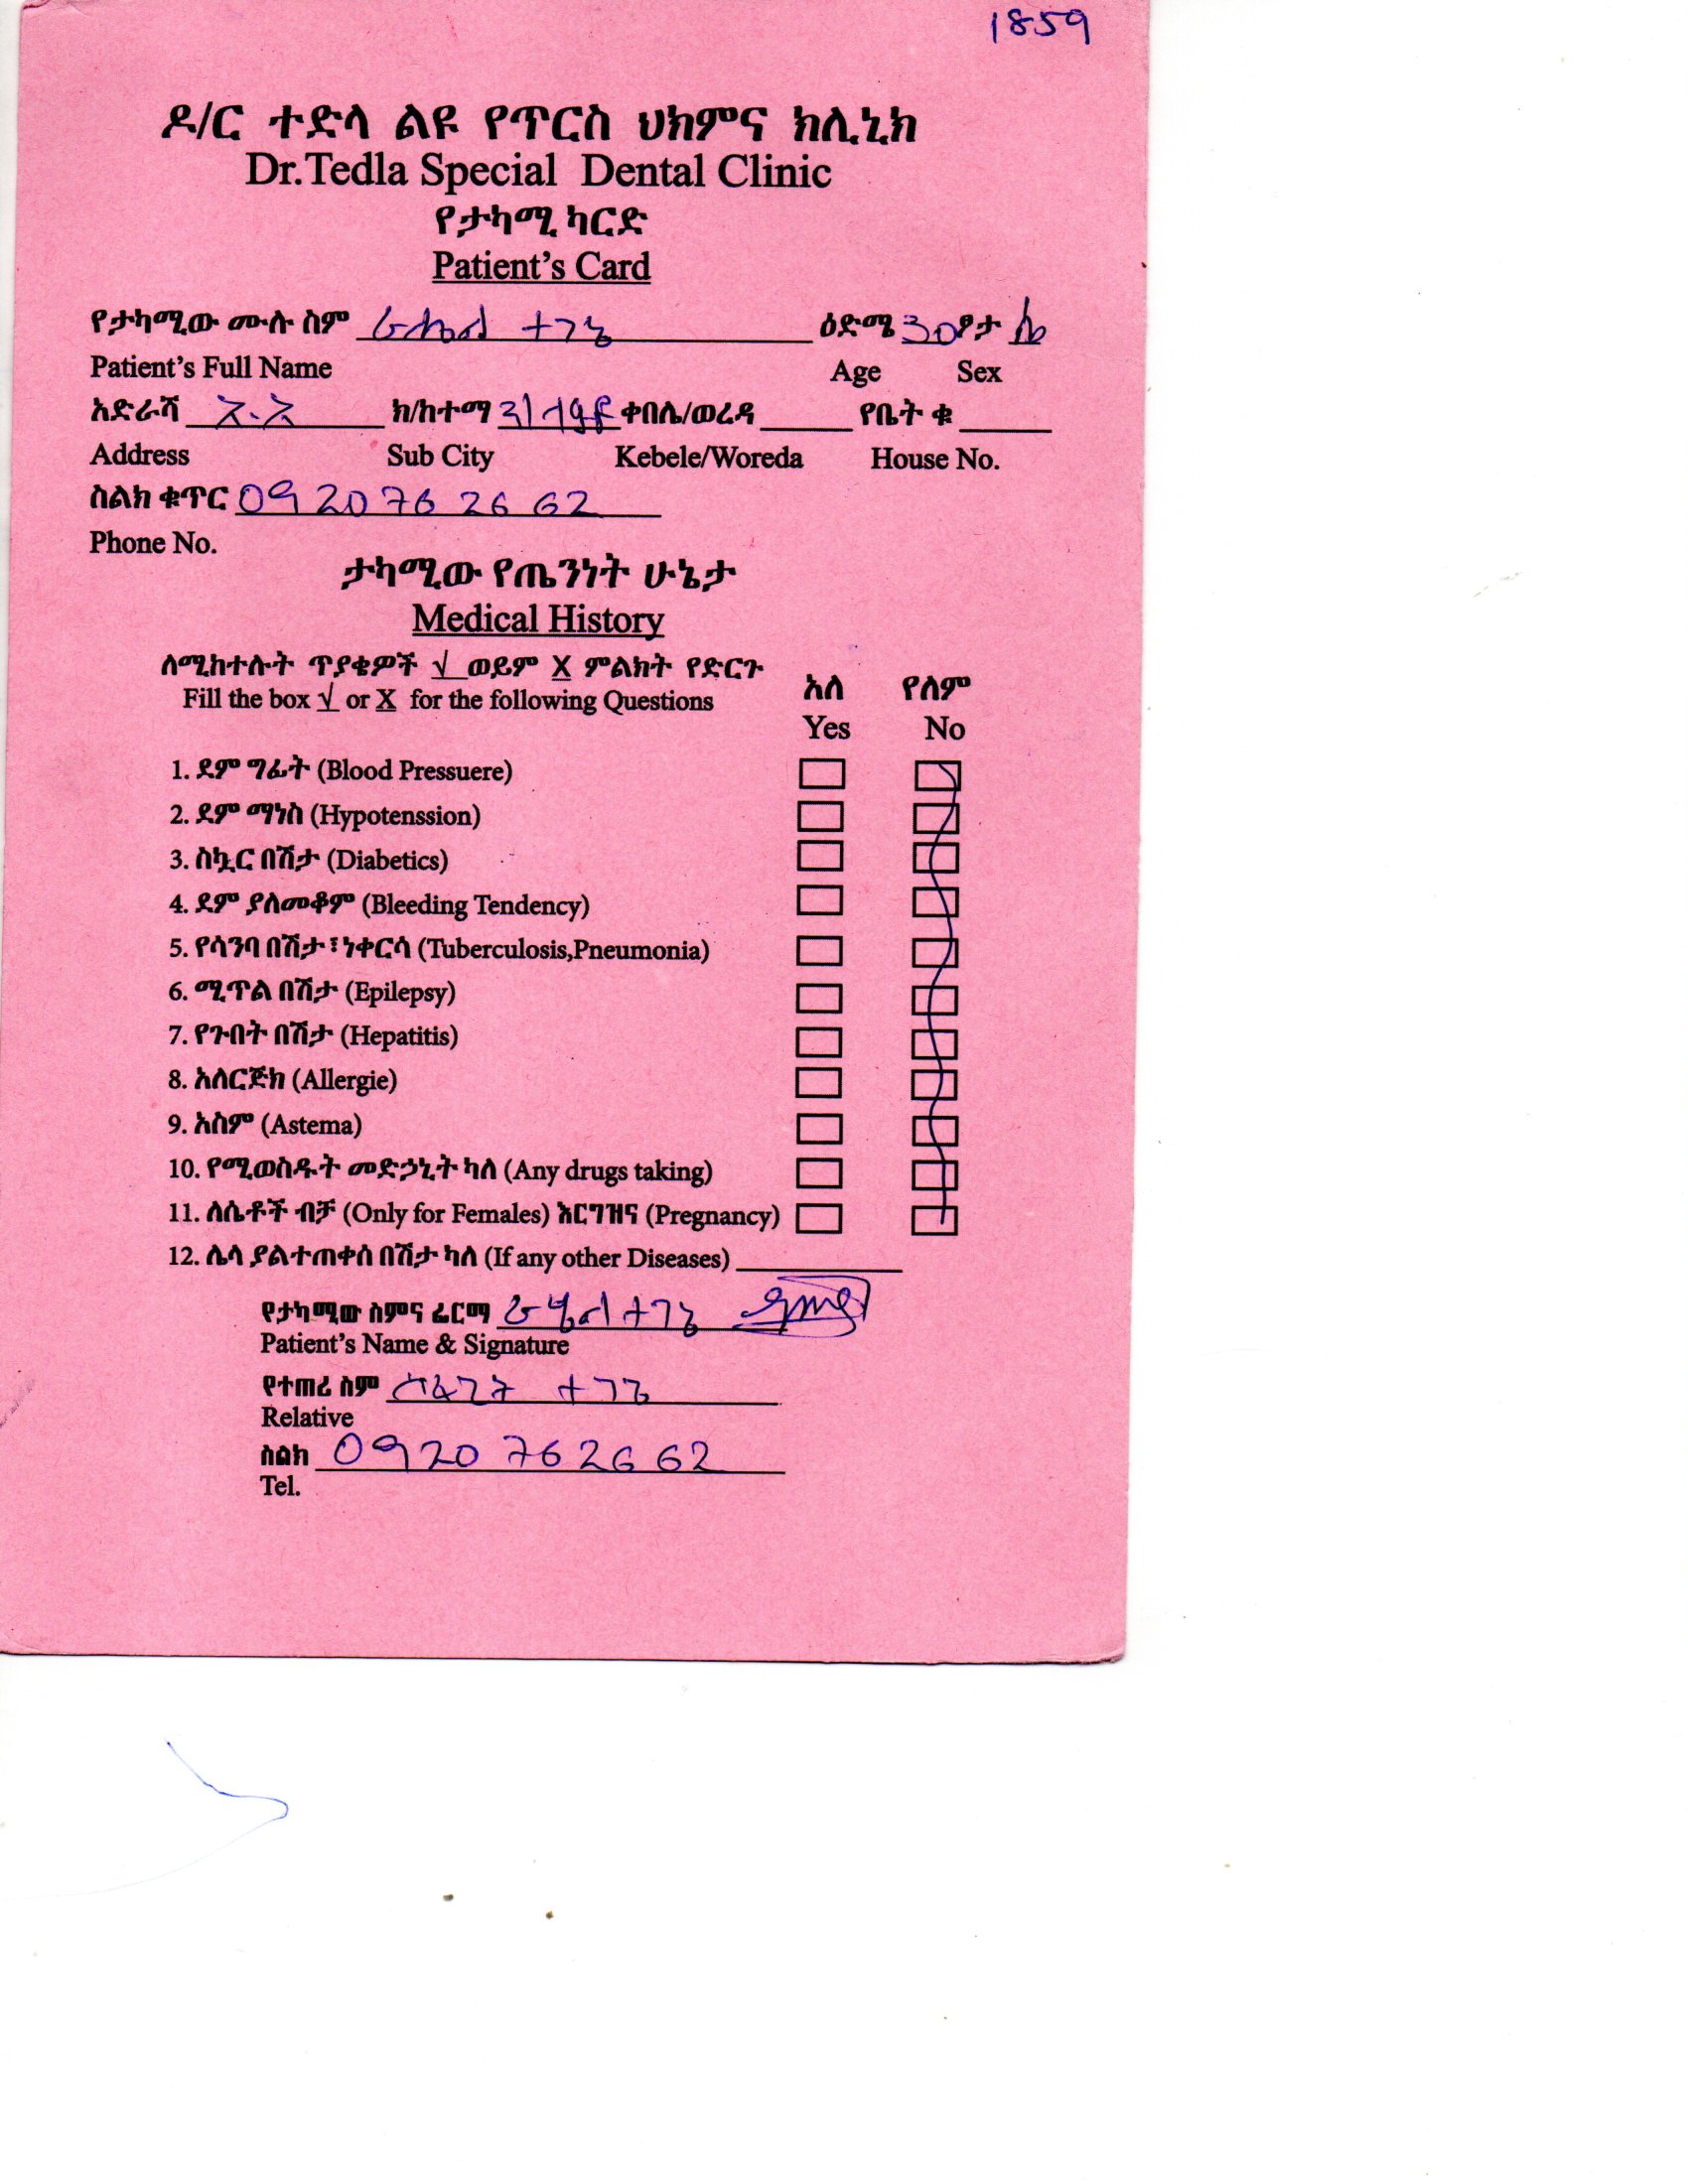 1859
ዶ/ር ተድላ ልዩ የጥርስ ህክምና ክሊኒክ
Dr.Tedla Special Dental Clinic
የታካሚ ካርድ
Patient's Card
የታካሚው ሙሉ ስም ተገኔ ዕድሜ 30 ፆታ ሴ
Patient's Full Name Age Sex
አድራሻ አ.አ ክ/ከተማ ቀበሌ/ወረዳ የቤት ቁ
Address Sub City Kebele/Woreda House No.
ስልክ ቁጥር 0920 76 26 62
Phone No.
ታካሚው የጤንነት ሁኔታ
Medical History
ለሚከተሉት ጥያቄዎች √ ወይም X ምልክት የድርጉ
Fill the box √ or X for the following Questions
አለ የለም
Yes No
1. ደም ግፊት (Blood Pressuere)
2. ደም ማነስ (Hypotenssion)
3. ስኳር በሽታ (Diabetics)
4. ደም ያለመቆም (Bleeding Tendency)
5. የሳንባ በሽታ፣ነቀርሳ (Tuberculosis,Pneumonia)
6. ሚጥል በሽታ (Epilepsy)
7. የጉበት በሽታ (Hepatitis)
8. አለርጅክ (Allergie)
9. አስም (Astema)
10. የሚወስዱት መድኃኒት ካለ (Any drugs taking)
11. ለሴቶች ብቻ (Only for Females) እርግዝና (Pregnancy)
12. ሌላ ያልተጠቀሰ በሽታ ካለ (If any other Diseases)
የታካሚው ስምና ፊርማ ተገኔ
Patient's Name & Signature
የተጠሪ ስም ተገኔ
Relative
ስልክ 0920 762662
Tel.